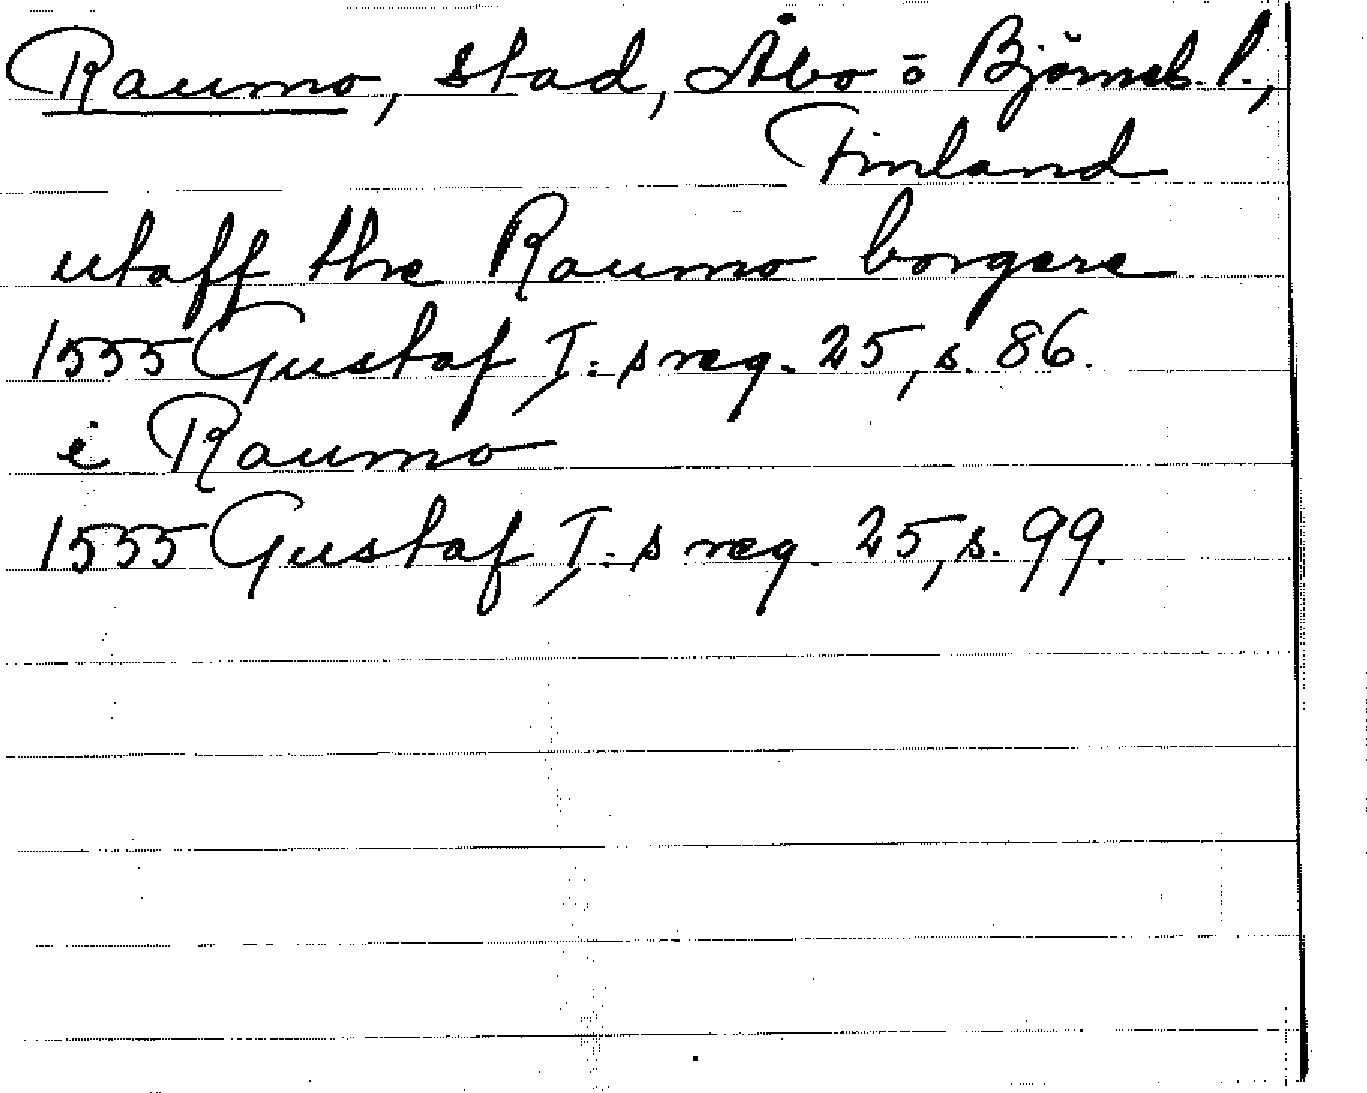 Raumo, stad, Åbo o Björneb. l.,
Finland
utaff the Raumo borgere
1555 Gustaf I:s reg. 25, s. 86.
i Raumo
1555 Gustaf I:s reg. 25, s. 99.